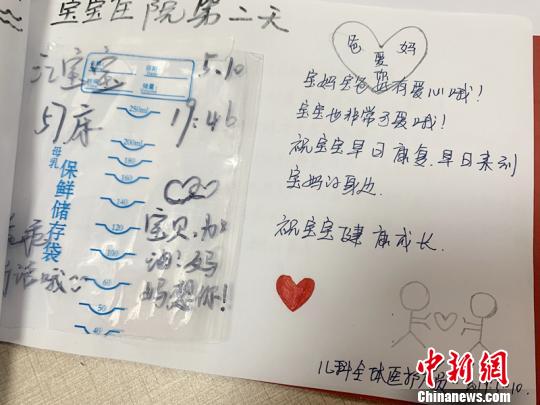 宝宝住院第二天
宝宝
5.10
57床
19:46
250ml
200ml
180
160
140
120
100
60
50
40
母乳
保鲜储存袋
宝贝,加
油!妈
妈想你!
爸 爱 妈
宝妈宝爸好有爱心哦!
宝宝也非常可爱哦!
祝宝宝早日康复.早日来到
宝妈的身边.
祝宝宝健康成长.
儿科全体医护人员
中新网
www.chinanews.com